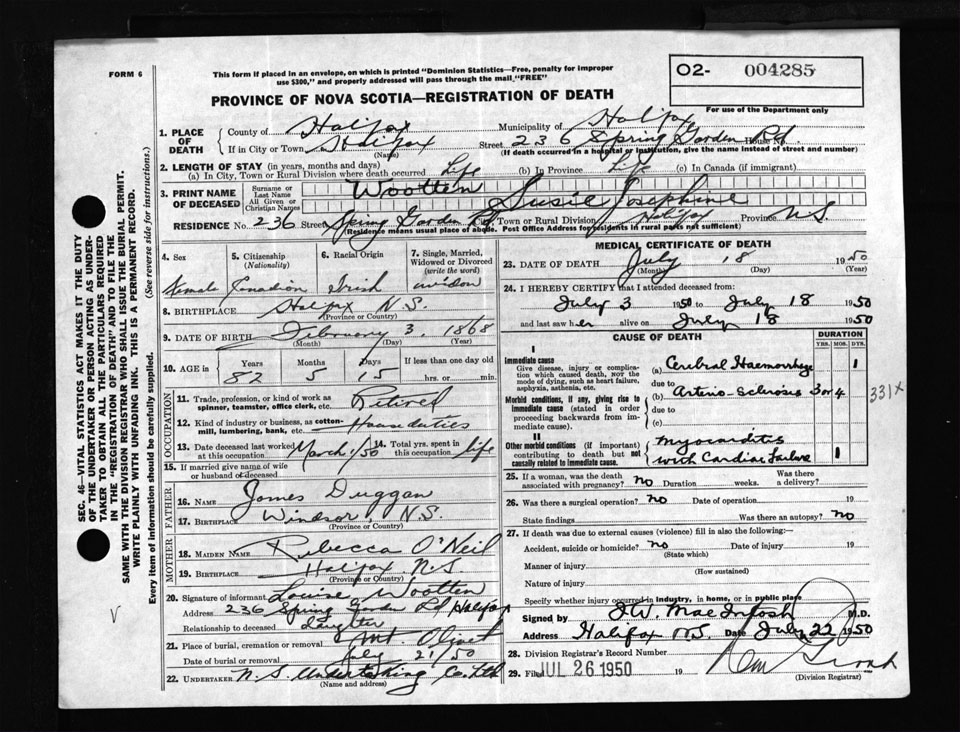 FORM 6
This form if placed in an envelope, on which is printed "Dominion Statistics—Free, penalty for improper
use $300," and properly addressed will pass through the mail "FREE"
O2- 004285
For use of the Department only
PROVINCE OF NOVA SCOTIA—REGISTRATION OF DEATH
1. PLACE OF DEATH County of Halifax Municipality of Halifax
If in City or Town Halifax Street 236 Spring Garden Rd. House No.
(Name) (If death occurred in a hospital or institution, give the name instead of street and number)
2. LENGTH OF STAY (in years, months and days)
(a) In City, Town or Rural Division where death occurred Life (b) In Province Life (c) In Canada (if immigrant)
3. PRINT NAME OF DECEASED Surname or Last Name Wootten
All Given or Christian Names Susie Josephine
RESIDENCE No. 236 Street Spring Garden Rd City Town or Rural Division Halifax Province N.S.
(Residence means usual place of abode. Post Office Address for residents in rural parts not sufficient)
4. Sex 5. Citizenship (Nationality) 6. Racial Origin 7. Single, Married, Widowed or Divorced (write the word)
Female Canadian Irish widow
8. BIRTHPLACE Halifax N.S.
(Province or Country)
9. DATE OF BIRTH February 3. 1868
(Month) (Day) (Year)
10. AGE in Years Months Days If less than one day old
82 5 15 hrs. or min.
OCCUPATION
11. Trade, profession, or kind of work as spinner, teamster, office clerk, etc. Retired
12. Kind of industry or business, as cotton-mill, lumbering, bank, etc. House duties
13. Date deceased last worked at this occupation March/50 14. Total yrs. spent in this occupation life
15. If married give name of wife or husband of deceased
FATHER
16. NAME James Duggan
17. BIRTHPLACE Windsor N.S.
(Province or Country)
MOTHER
18. MAIDEN NAME Rebecca O'Neil
19. BIRTHPLACE Halifax N.S.
(Province or Country)
20. Signature of informant Louise Wootten
Address 236 Spring Garden Rd Halifax
Relationship to deceased daughter
21. Place of burial, cremation or removal Mt. Olivet
Date of burial or removal July 21/50
22. UNDERTAKER N.S. Undertaking Co. Ltd
(Name and address)
MEDICAL CERTIFICATE OF DEATH
23. DATE OF DEATH July 18 1950
(Month) (Day) (Year)
24. I HEREBY CERTIFY that I attended deceased from:
July 3 1950 to July 18 1950
and last saw her alive on July 18 1950
CAUSE OF DEATH DURATION
YRS. MOS. DYS.
I
Immediate cause
Give disease, injury or complication which caused death, NOT the mode of dying, such as heart failure, asphyxia, asthenia, etc.
(a) Cerebral Haemorrhage 1
due to
Morbid conditions, if any, giving rise to immediate cause (stated in order proceeding backwards from immediate cause).
(b) Arterio-sclerosis 3 or 4
due to
(c)
331X
II
Other morbid conditions (if important) contributing to death but not causally related to immediate cause.
Myocarditis
with Cardiac Failure 1
25. If a woman, was the death associated with pregnancy? No Duration weeks. Was there a delivery?
26. Was there a surgical operation? No Date of operation 19
State findings Was there an autopsy? No
27. If death was due to external causes (violence) fill in also the following:
Accident, suicide or homicide? No Date of injury 19
(State which)
Manner of injury
(How sustained)
Nature of injury
Specify whether injury occurred in industry, in home, or in public place
Signed by J.W. MacIntosh M.D.
Address Halifax N.S. Date July 22 1950
28. Division Registrar's Record Number
29. Filed JUL 26 1950 19
(Division Registrar)
SEC. 46—VITAL STATISTICS ACT MAKES IT THE DUTY
OF THE UNDERTAKER OR PERSON ACTING AS UNDER-
TAKER TO OBTAIN ALL THE PARTICULARS REQUIRED
IN THE "REGISTRATION OF DEATH" AND TO FILE THE
SAME WITH THE DIVISION REGISTRAR WHO SHALL ISSUE THE BURIAL PERMIT.
WRITE PLAINLY WITH UNFADING INK. THIS IS A PERMANENT RECORD.
Every item of information should be carefully supplied. (See reverse side for instructions.)